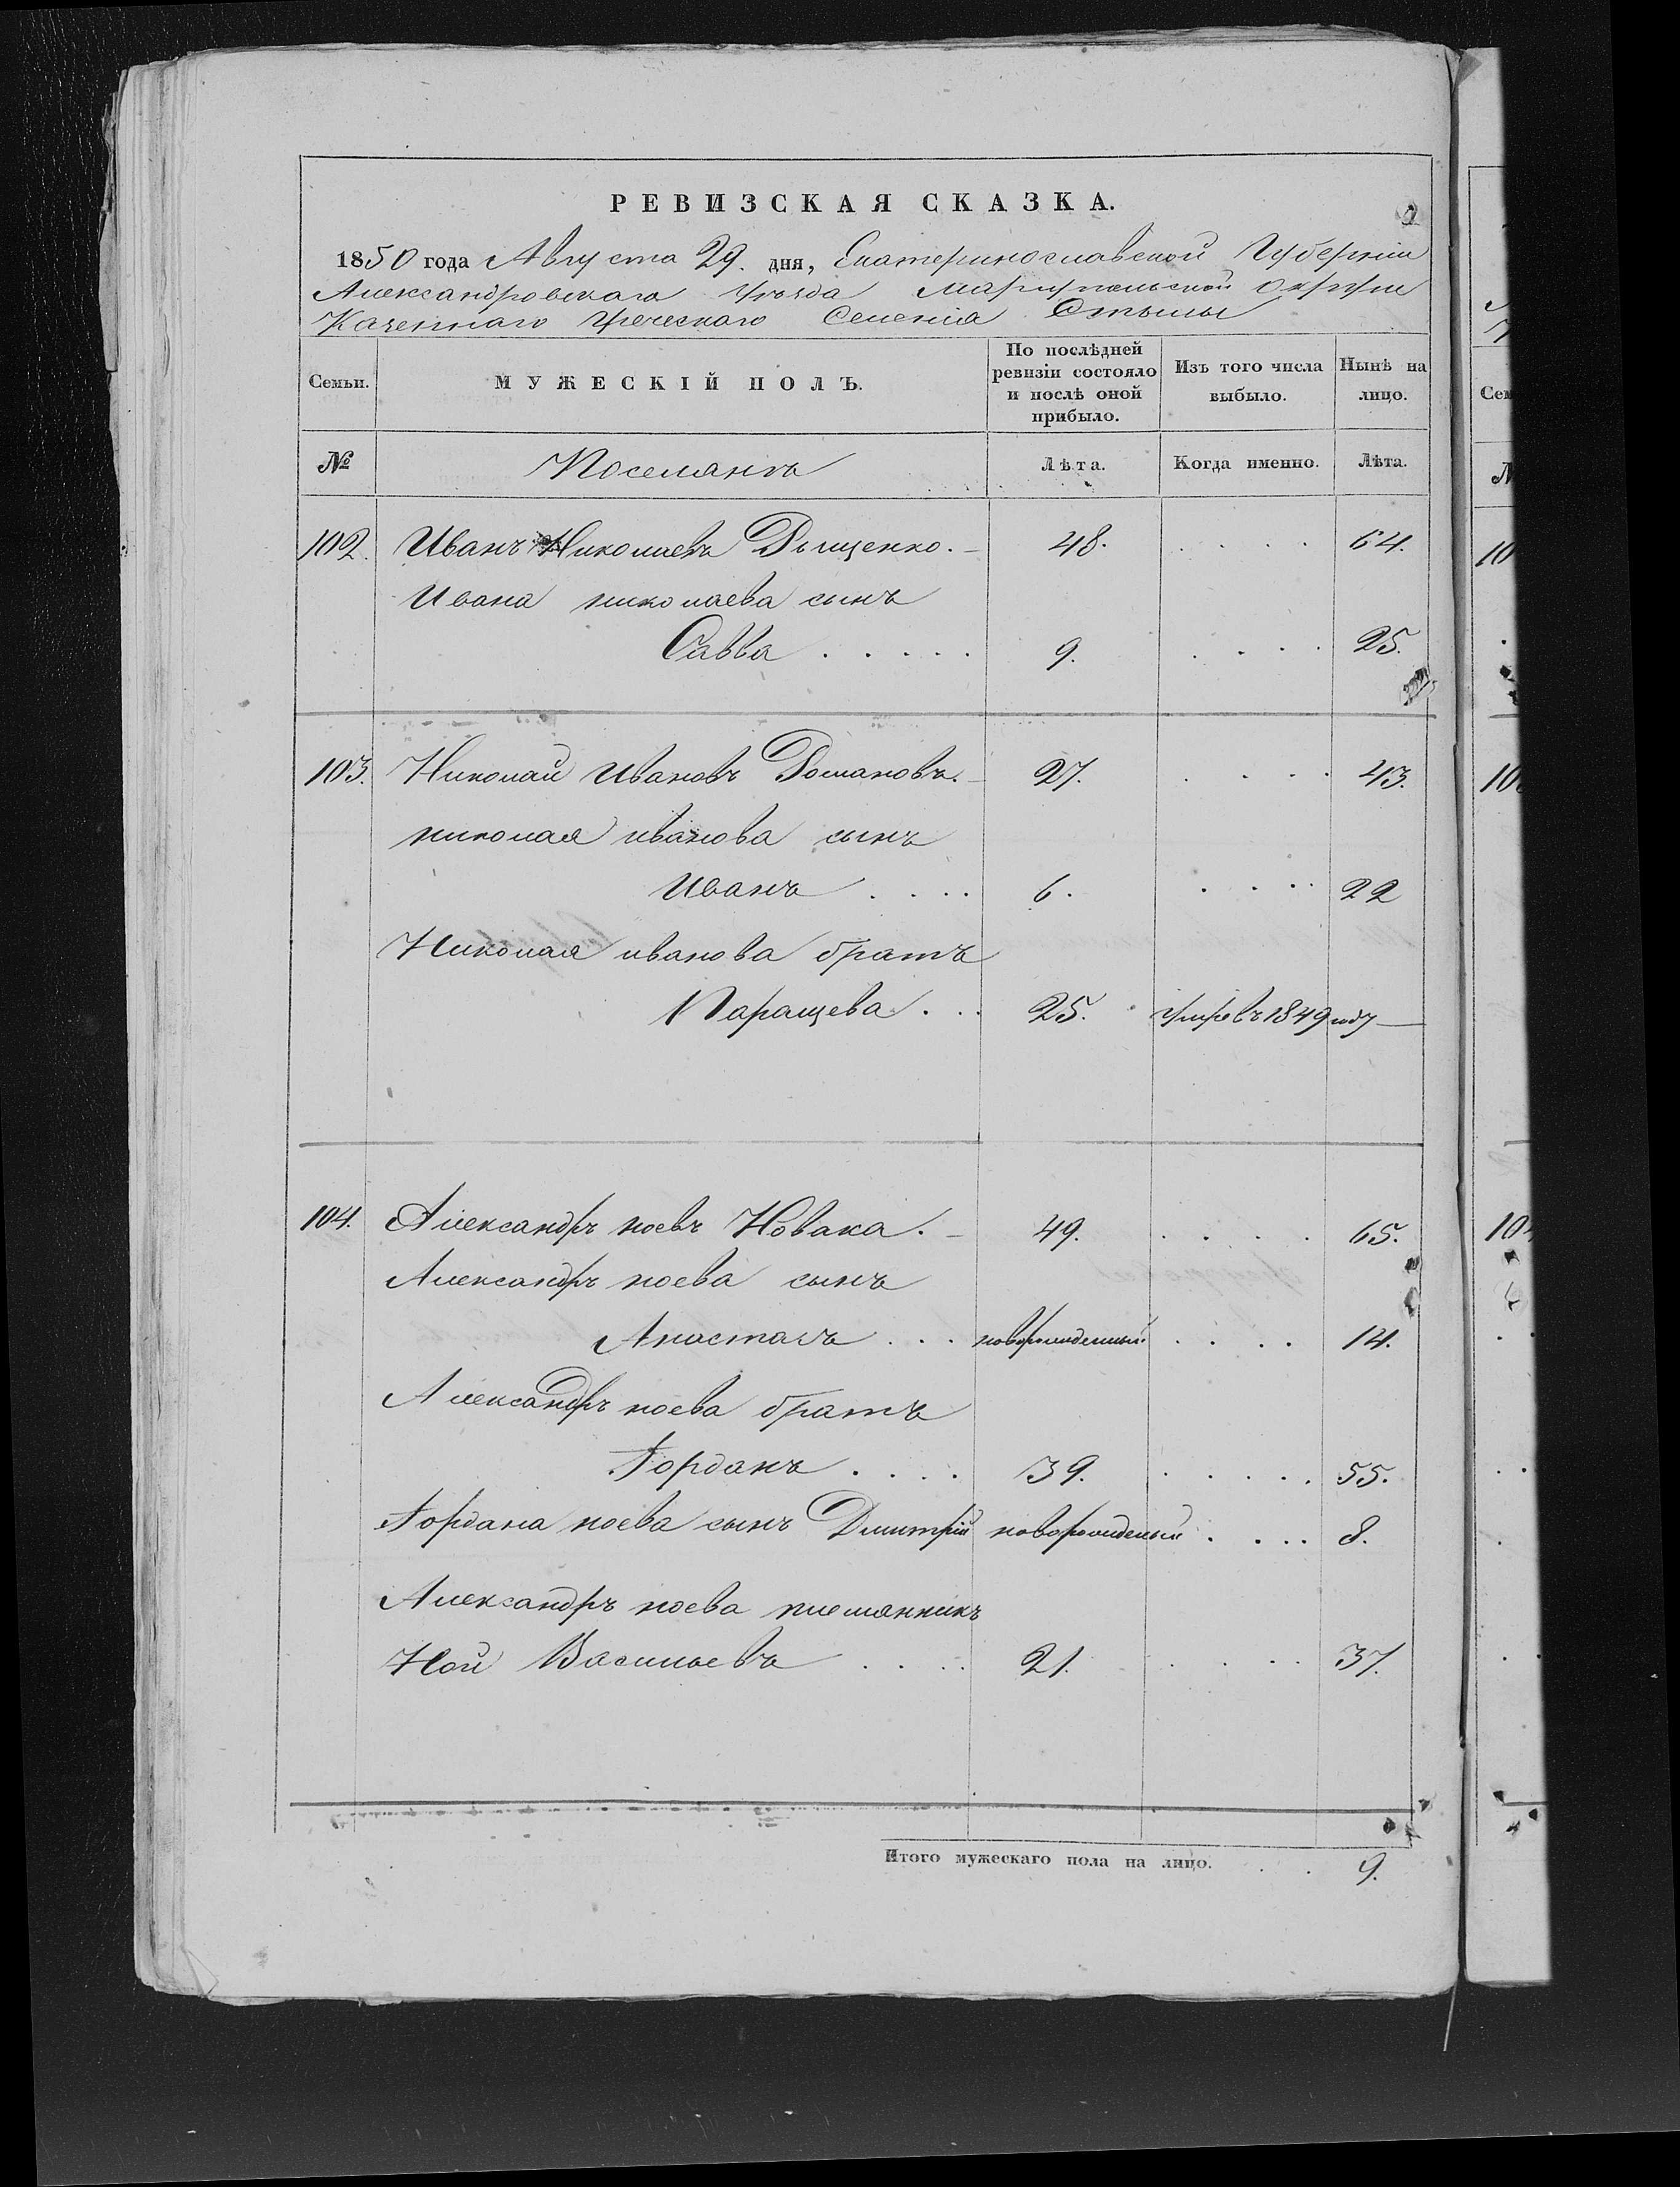 РЕВИЗСКАЯ СКАЗКА.
1850 года Августа 29. дня, Екатеринославской Губерніи
Александровскаго Уѣзда Маріупольской округи
Казеннаго Греческаго Селенія Стылы
Семьи. МУЖЕСКІЙ ПОЛЪ. По послѣдней ревизіи состояло и послѣ оной прибыло. Изъ того числа выбыло. Нынѣ на лицо.
№ Поселянъ Лѣта. Когда именно. Лѣта.
102. Иванъ Николаевъ Дыщенко. 48. . . . . 64.
Ивана николаева сынъ
Савва . . . . . 9. . . . . 25.
103. Николай Ивановъ Домановъ. 27. . . . . 43.
николая иванова сынъ
Иванъ . . . . 6. . . . . 22
Николая иванова братъ
Паращева . . . 25. умре въ 1849 году —
104. Александръ ноевъ Новака. 49. . . . . 65.
Александръ ноева сынъ
Анастасъ . . . новорожденный . . . . 14.
Александръ ноева братъ
Іорданъ . . . . 39. . . . . . 55.
Іордана ноева сынъ Дмитрій новорожденый . . . . 8.
Александръ ноева племянникъ
Ной Васильевъ . . . . 21. . . . . 37.
Итого мужескаго пола на лицо. . . 9.
Сем
№
10
10
104